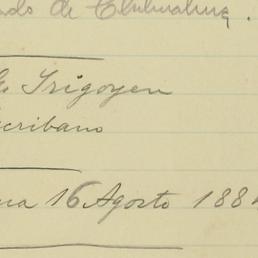 de Chihuahua.
Irigoyen
cribano
16 Agosto 188